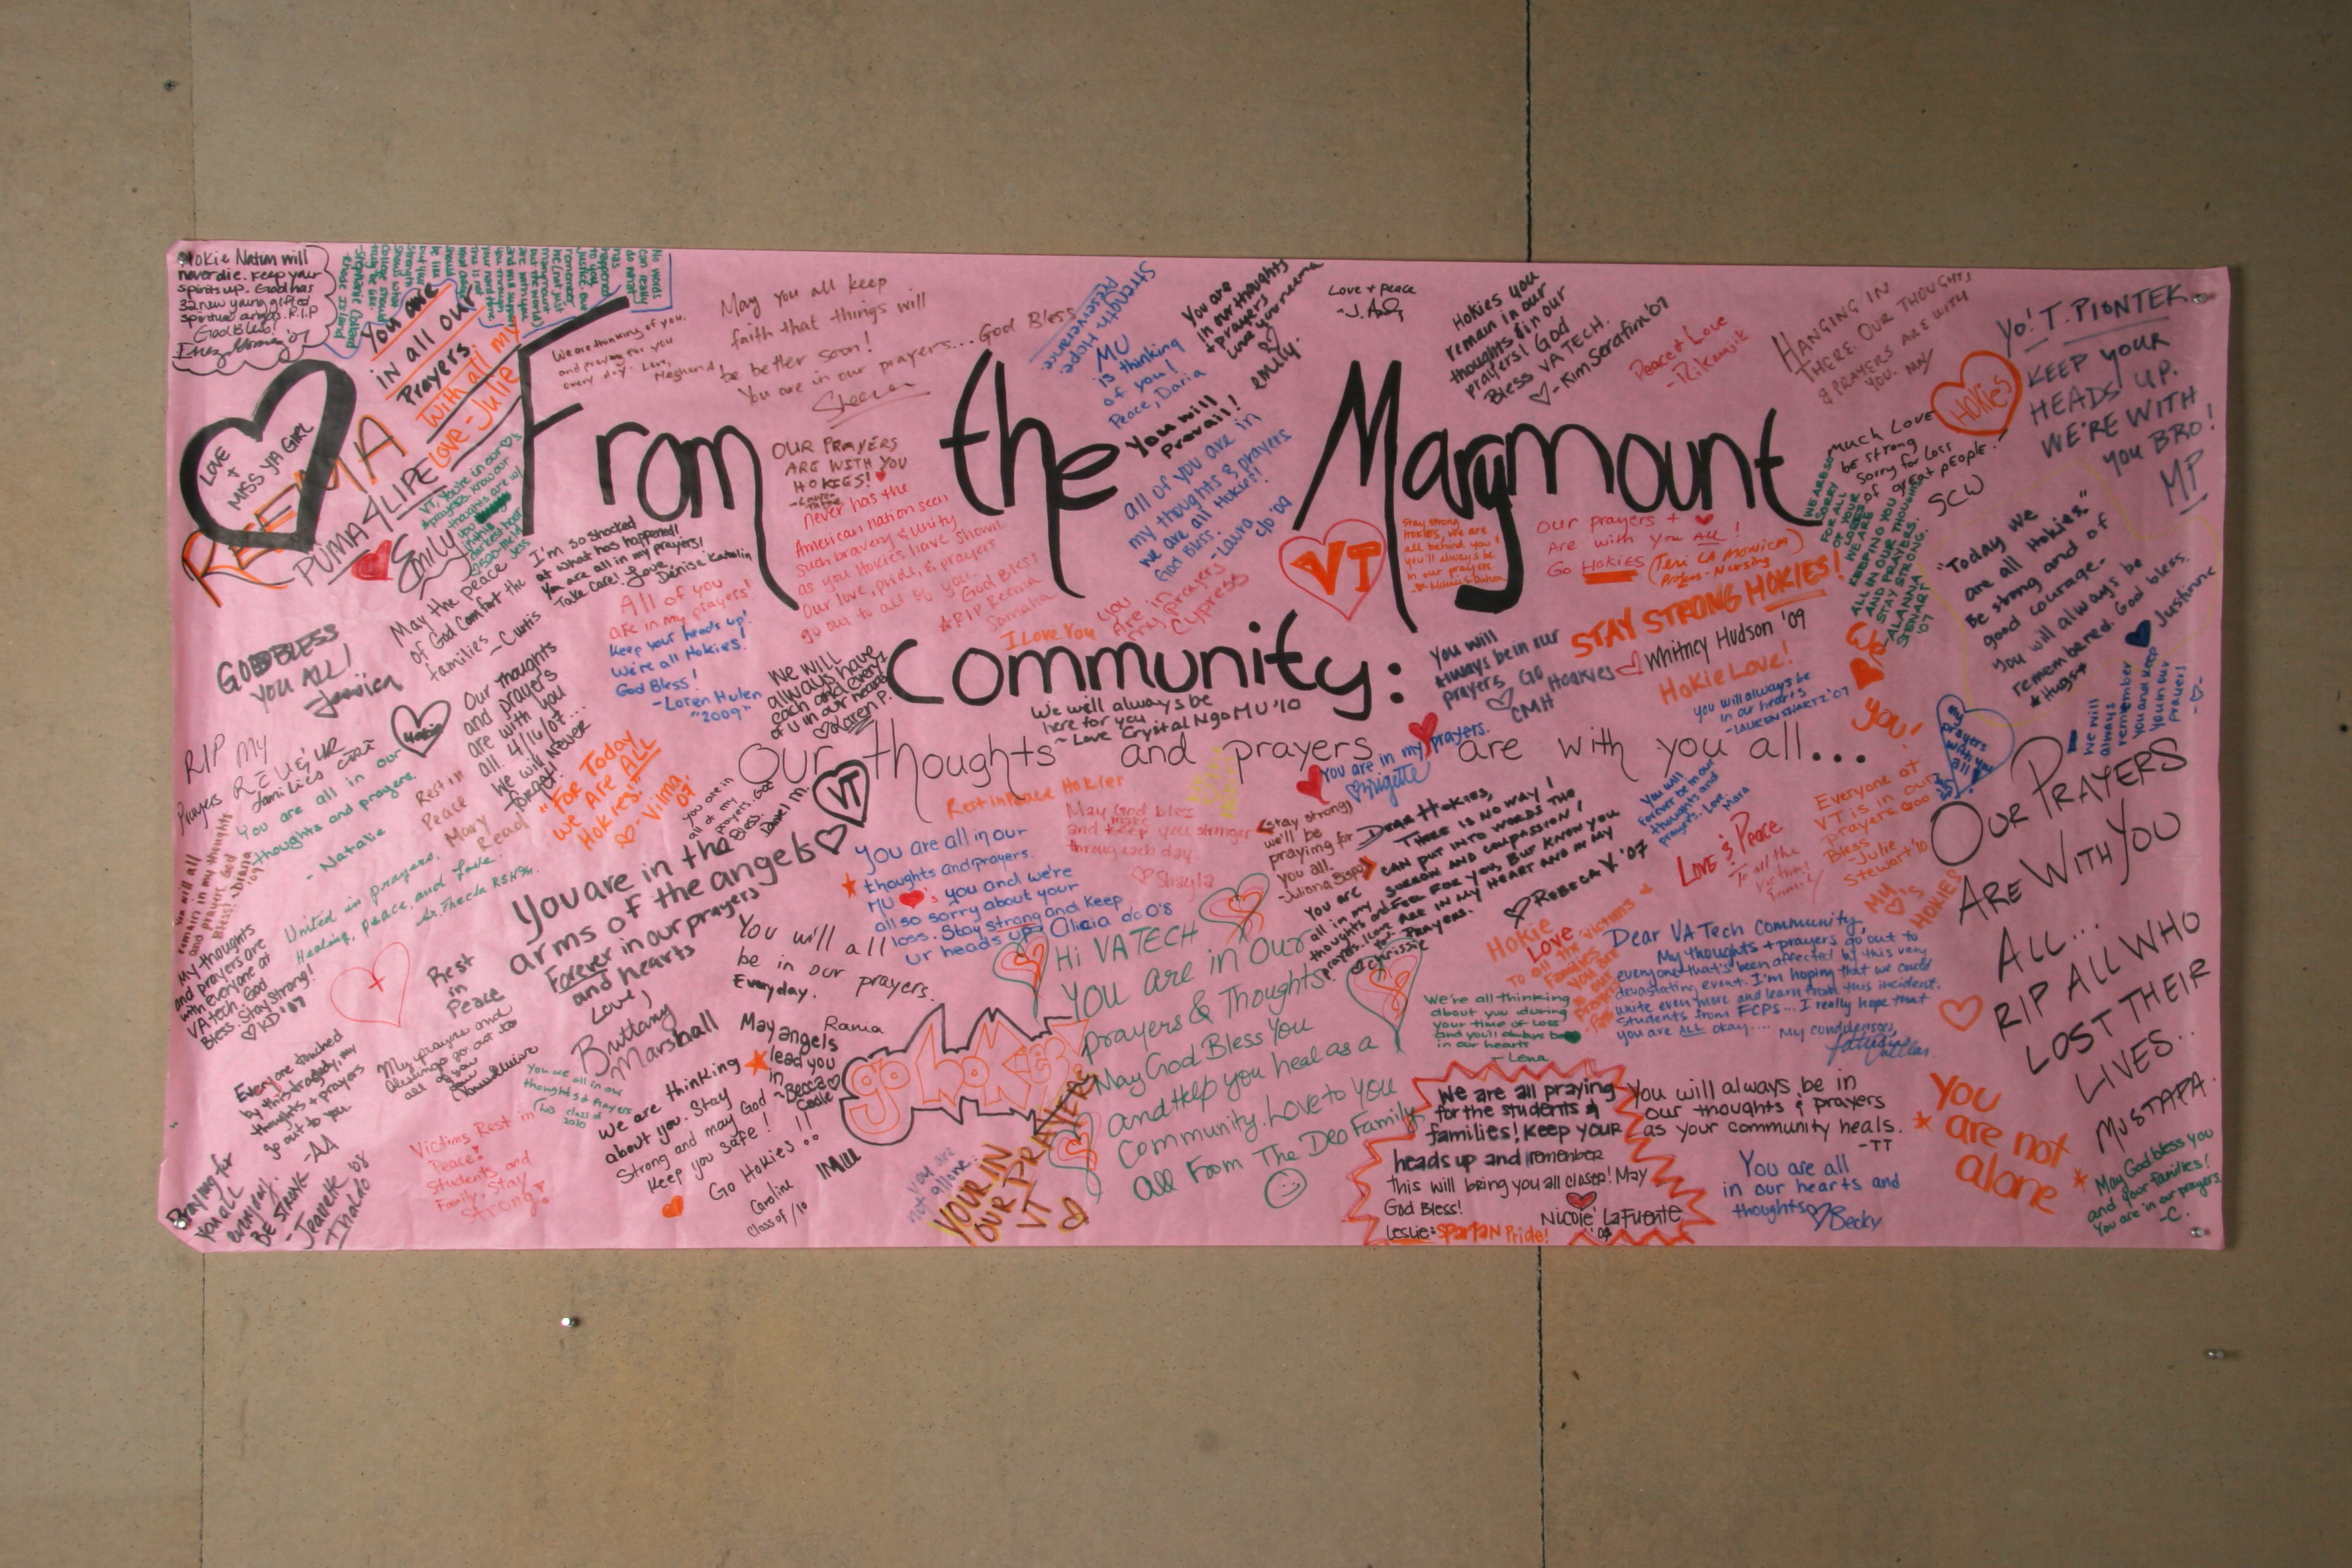 Hokie Nation will
never die. Keep your
spirits up. God has
32 new young gifted
spiritual angels. R.I.P
God Bless!
No words
can really
do what
has
happened
to you
justice. But
remember
we (not just
Marymount
but the world)
are with you
and will support
you through
your hard time.
This is not
what college
should
be like
but your
strength
shows what
College should
truly be like.
-Stephanie Collard
Rhode Island
You are
in all our
Prayers.
With all my
Love - Julie
We are thinking of you.
and praying for you
every day. Love,
Meghan
May you all keep
faith that things will
be better soon!
You are in our prayers... God Bless
Sheena
Strength. Hope.
Perserverance
MU
is thinking
of you!
Peace, Daria
You are
in our thoughts
+ prayers
Love you reema
emily.
Love + peace
Hokies you
remain in our
thoughts & in our
prayers! God
Bless VA TECH.
- Kim Serafin '07
Peace & Love
HANGING IN
THERE. OUR THOUGHTS
& PRAYERS ARE WITH
YOU.
Yo! T. PIONTEK
KEEP YOUR
HEADS UP.
WE'RE WITH
YOU BRO!
MP
HOKIES
LOVE
+
MISS YA GIRL
REEMA
PUMA 4 LIFE
Emily
From the Marymount
Community:
Our thoughts and prayers are with you all...
VT, you're in our
prayers. Know our
thoughts are w/
you
in this
darkest hour
2500-mc.H
Jess
OUR PRAYERS
ARE WITH YOU
HOKIES!
You will
Prevail!
all of you are in
my thoughts & prayers
we are all Hokies!
God Bless. -Laura
c/o '09
Much Love
be strong
Sorry for loss
of great people!
SCW
WE ARE SO
SORRY
FOR ALL
OF YOUR
LOSSES
WE ARE
ALL KEEPING YOU
IN OUR THOUGHTS
AND PRAYERS.
STAY STRONG.
-ALANNA
STEWART
'07
"Today we
are all Hokies."
Be strong and of
good courage.
You will always be
remembered. God bless.
*Hugs* Justinne
I'm so shocked
at what has happened!
You are all in my prayers!
Take Care! Love,
Denise Katalin
never has the
American nation seen
such bravery & unity
as you Hokies have shown.
Our love, pride, & prayers
go out to all of you.
God Bless
*RIP Reema
Samaha
I Love You
You
Are in
my prayers
Cypress
VT
Stay strong
HOKIES, we are
all behind you!
you'll always be
in our prayers
Our prayers +
Are with you ALL!
Go Hokies (Teri LA MONICA)
Profess - Nursing
STAY STRONG HOKIES!
Whitney Hudson '09
Hokie Love!
We
you!
May the peace
of God comfort the
families - Curtis
All of you
are in my prayers!
Keep your heads up!
We're all Hokies!
God Bless!
-Loren Hulen
"2009"
WE WILL
always have
each and every 1
of U in our hearts
Loren P.
We will always be
here for you
~ Love Crystal Ngo MU '10
You will
always be in our
prayers. Go Hoakies
CMH
you will always be
in our hearts
-LAUREN SWARTZ '07
We will
always
remember
you and keep
you in our
prayers
my
prayers
with you
all!
GOD BLESS
YOU ALL!
Jessica
Hokies
Our thoughts
and prayers
are with you
all. 4/16/07...
We will Never
forget.
RIP My
Prayers R E U & UR
families
You are all in our
thoughts and prayers.
- Natalie
Rest in
Peace
Mary
Read
"For Today
We Are ALL
Hokies."
- Vilma
'07
you are in
all of my
prayers. God
Bless. Daniel M.
VT
Rest in Peace Hokies
May God bless
and make
keep you stronger
through each day.
Shayla
You are in my prayers.
Brigitte
(stay strong)
we'll be
praying for
you all.
-Juliana Bispo
Dear Hokies,
THERE IS NO WAY I
CAN PUT INTO WORDS THE
SORROW AND COMPASSION I
FEEL FOR YOU, BUT KNOW YOU
ARE IN MY HEART AND IN MY
PRAYERS.
REBECA V. '07
You will
forever be in our
thoughts and
prayers. Love, Mara
Love & Peace
To all the
Victims
Family
Everyone at
VT is in our
prayers. God
Bless
-Julie
Stewart '10
OUR PRAYERS
ARE WITH YOU
ALL...
RIP ALL WHO
LOST THEIR
LIVES..
MUSTAFA.
You will all
remain in my thoughts
and prayers God
Bless! -Diana
'09
United in prayers,
Healing, peace, and love.
Sr. Thecla RSHM.
You are in the
arms of the angels
Forever in our prayers
and hearts
Love,
Brittany
Marshall
You are all in our
thoughts and prayers.
MU ♥'s you and we're
all so sorry about your
loss. Stay strong and keep
ur heads up, Olicia c/o '08
You will all
be in our prayers.
Everyday.
Rania
Hi VA TECH
You are in Our
prayers & Thoughts.
May God Bless You
and Help you heal as a
Community. Love to you
all From The Deo Family.
You are
all in my
thoughts and
prayers. Love
Chrissie
Hokie
Love
To all the victims &
Families
You are
in our
Prayers
My
♥'s
HOKIES
Dear VA Tech Community,
My thoughts + prayers go out to
everyone that's been affected by this very
devastating event. I'm hoping that we could
unite even more and learn from this incident.
Students from FCPS... I really hope that
you are ALL okay....
My condolences,
My thoughts
and prayers are
with everyone at
VA tech. God
Bless. Stay Strong!
KD '07
Rest
in
Peace
My prayers and
blessings go out to
all of you
You're all in our
thoughts & Prayers
class of
2010
We're all thinking
about you during
your time of loss
and you'll always be
in our hearts
- Lena
Everyone touched
by this tragedy, my
thoughts + prayers
go out to you
-AA
We are thinking
about you. Stay
Strong and may God
keep you safe!
Go Hokies!!
Caroline
class of '10
May angels
lead you
in
~Becca
go HOKIES
Victims Rest in
Peace!
Students and
Family, Stay
Strong!
Praying for
you all
everyday.
BE STRONG
-Jeanette
you are
not alone
YOUR IN
OUR PRAYERS
VT
We are all praying
for the students &
families! Keep your
heads up and remember
this will bring you all closer! May
God Bless!
Nicole' LaFuente
'09
Leslie: Spartan Pride!
You will always be in
our thoughts & prayers
as your community heals.
-TT
You are all
in our hearts and
thoughts Becky
You
are not
alone
May God bless you
and your families!
You are in our prayers.
-C.